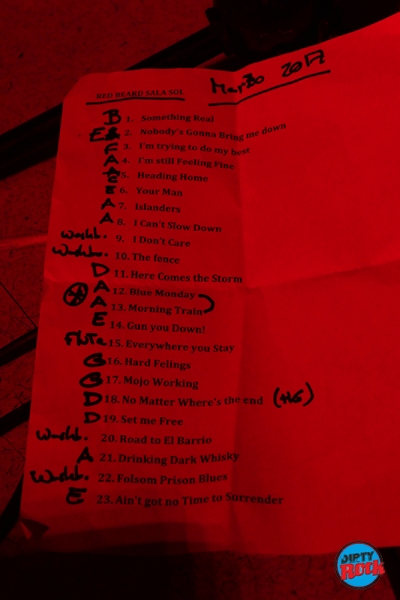 RED BEARD SALA SOL
2017
B 1. Something Real
2. Nobody's Gonna Bring me down
3. I'm trying to do my best
A 4. I'm still Feeling Fine
5. Heading Home
E 6. Your Man
A 7. Islanders
A 8. I Can't Slow Down
Washb. 9. I Don't Care
Washb. 10. The fence
D 11. Here Comes the Storm
A 12. Blue Monday
A 13. Morning Train
E 14. Gun you Down!
15. Everywhere you Stay
G 16. Hard Felings
G 17. Mojo Working
D 18. No Matter Where's the end
D 19. Set me Free
Washb. 20. Road to El Barrio
A 21. Drinking Dark Whisky
Washb. 22. Folsom Prison Blues
E 23. Ain't got no Time to Surrender
DIRTY
Rock